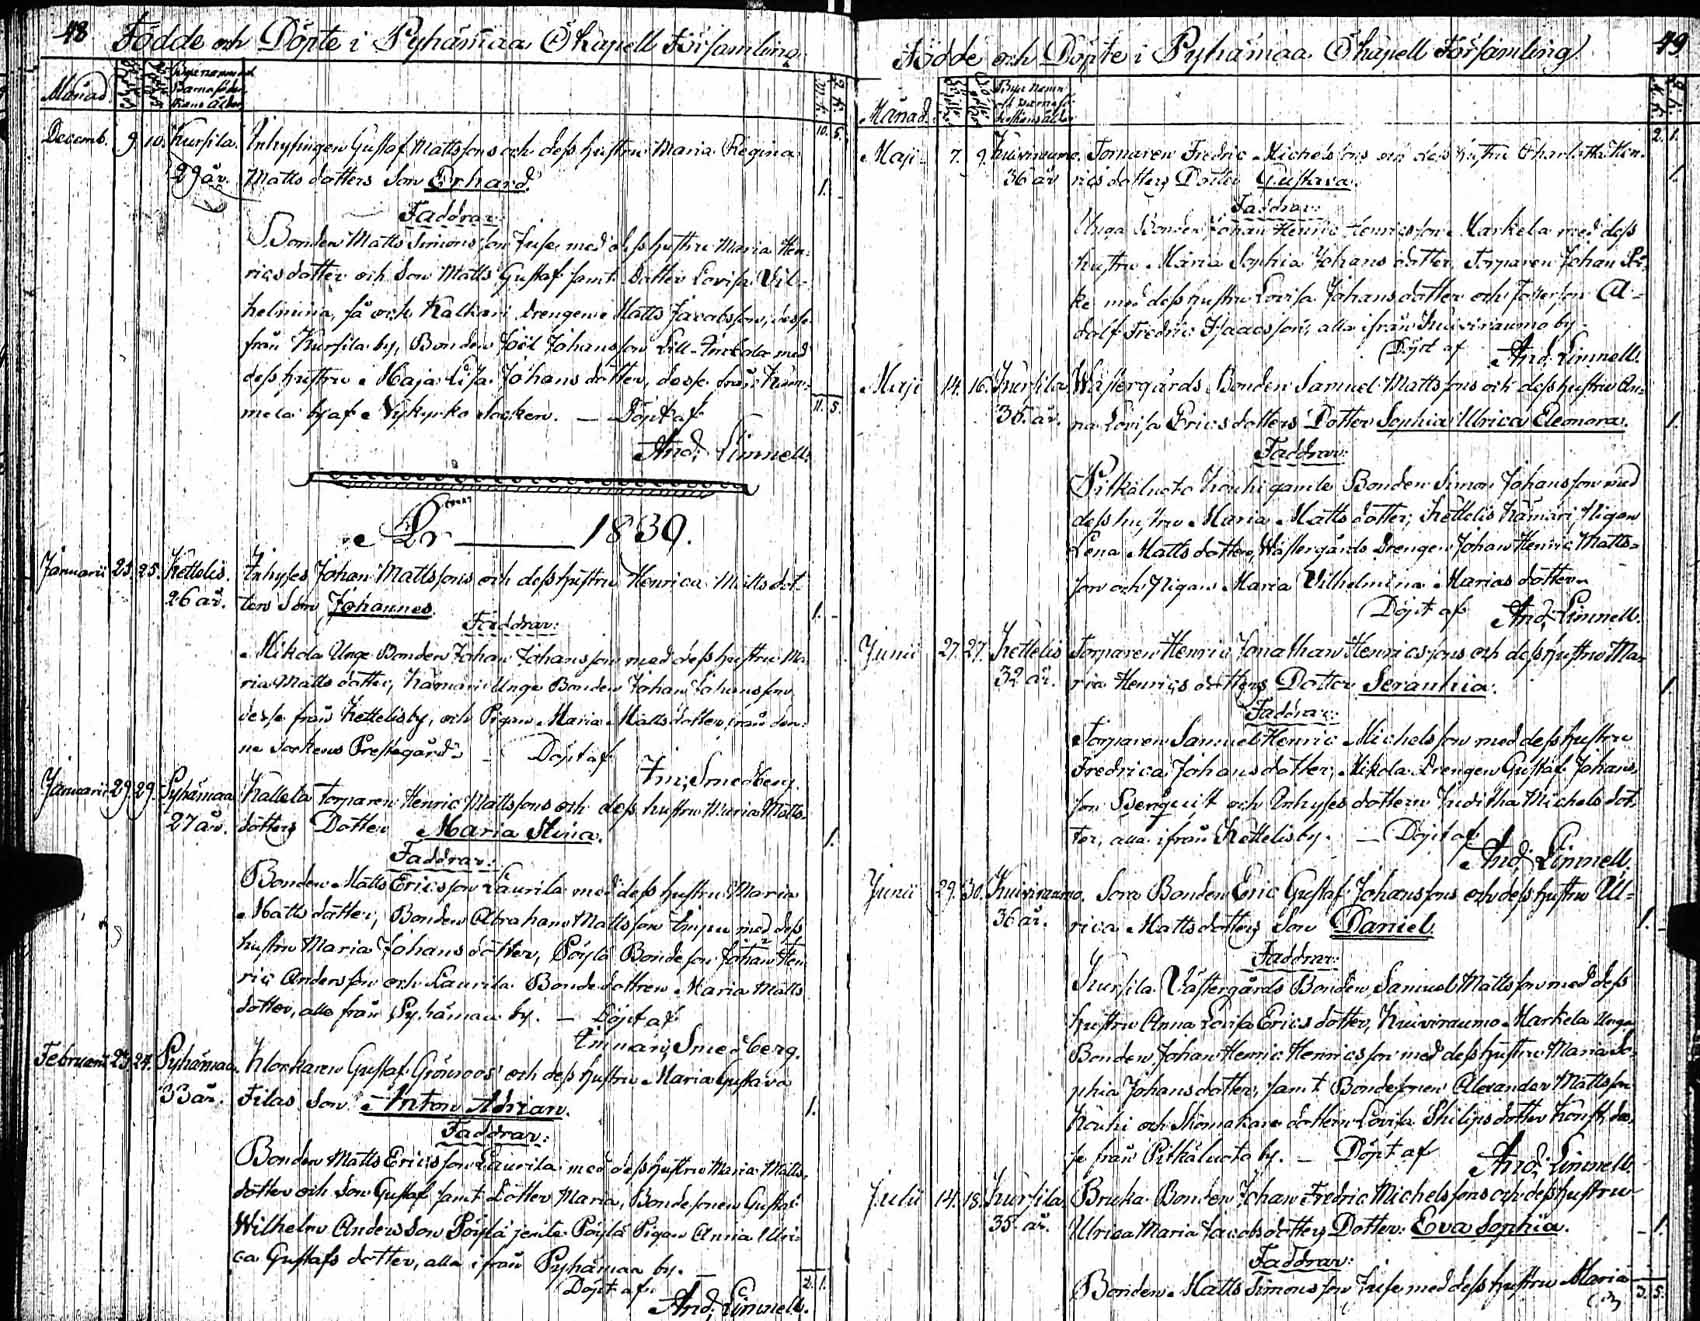 48 Födde och Döpte i Pyhämaa Capell Församling
Månad
Decemb. 9. 10. Kursila. Inhysingen Gustaf Mattssons och dess hustru Maria Regina
29 år. Matts dotters Son Erhard. 1.
Faddrar:
Bonden Matts Simonsson Juse med dess hustru Maria Hen-
ricsdotter och Son Matts Gustaf samt dotter Lovisa Vil-
helmina, så ock Kalkari drengen Matts Jacobsson, desse
från Kursila by, Bonden Joel Johansson Lill-
dess hustru Maja Lisa Johans dotter, desse från Kam-
mela by af Nykyrko socken. — Döpt af 11. 5.
And: Linnell.
Pro 1839.
Januarii 23. 25. Kettelis. Inhyses Johan Mattssons och dess hustru Henrica Matts dot-
26 år. ters Son Johannes. 1.
Faddrar:
Mikola Unge Bonden Johan Johansson med dess hustru Ma-
ria Matts dotter, Kämäri Unge Bonden Johan Johansson
desse från Kettelis by, och Pigan Maria Matts dotter, från den-
ne Sockens Prestegård. Döpt af
Im: Smedberg.
Januarii 29. 29. Pyhämaa Kallela Torparen Henric Mattssons och dess hustru Maria Matts-
27 år. dotters Dotter Maria Stina. 1.
Faddrar:
Bonden Matts Ericsson Laurila med dess hustru Maria
Matts dotter, Bonden Abraham Mattsson Impu med dess
hustru Maria Johans dotter, Pöylä Bondeson Johan Hen-
ric Andersson och Laurila Bonde dottren Maria Matts
dotter, alla från Pyhämaa by. — Döpt af
Imman: Smedberg.
Februarii 23. 24. Pyhämaa Klockaren Gustaf Grönroos' och dess hustru Maria Gustava
33 år. Filas Son Anton Adrian. 1.
Faddrar:
Bonden Matts Ericsson Laurila med dess hustru Maria Matts
dotter och Son Gustaf samt Dotter Maria, Bondesonen Gustaf
Wilhelm Andersson Pöylä jemte Pöylä Pigan Anna Ulri-
ca Gustafs dotter, alla ifrån Pyhämaa by. —
Döpt af 2. 1.
And: Linnell.
Födde och Döpte i Pyhämaa Capell Församling 49
Månad
2. 1.
Maji 7. 9. Kuivirauma. Torparen Fredric Michelssons och dess hustru Charlotta Hen-
36 år rics dotters Dotter Gustava. 1.
Faddrar:
Unga Bonden Johan Henric Henricsson Markela med dess
hustru Maria Sophia Johans dotter, Torparen Johan
ke med dess hustru Lovisa Johans dotter och A-
dolf Fredric Isaacsson, alla ifrån Kuivirauma by.
Döpt af And: Linnell.
Maji 14. 16. Kursila Wästergårds Bonden Samuel Mattssons och dess hustru An-
35 år. na Lovisa Erics dotters Dotter Sophia Ulrica Eleonora. 1.
Faddrar:
Pitkäluoto Kouhi gamle Bonden Simon Johansson med
dess hustru Maria Matts dotter, Kettelis Kämäri Pigan
Lena Matts dotter, Wästergårds Drengen Johan Henric Matts-
son och Pigan Maria Vilhelmina Marias dotter.
Döpt af And: Linnell.
Junii 27. 27. Kettelis Torparen Henric Jonathan Henricssons och dess hustru Ma-
32 år. ria Henrics dotters Dotter Seraphia. 1.
Faddrar:
Torparen Samuel Henric Michelsson med dess hustru
Fredrica Johans dotter, Mikola Drengen Gustaf Johans-
son Bergquist och Inhyses dottern Juditha Michels dot-
ter, alla ifrån Kettelis by. — Döpt af
And: Linnell.
Junii 29. 30. Kuivirauma. Sora Bonden Eric Gustaf Johanssons och dess hustru Ul-
36 år. rica Matts dotters Son Daniel. 1.
Faddrar:
Kursila Västergårds Bonden Samuel Mattsson med dess
hustru Anna Lovisa Erics dotter, Kuivirauma Markela Unga
Bonden Johan Henric Henricsson med dess hustru Maria So-
phia Johans dotter, samt Bondesonen Alexander Mattsson
Kouhi och Skomakare dottern Lovisa Philips dotter
se från Pitkäluoto by. — Döpt af And: Linnell.
Julii 14. 18. Kursila Bruka Bonden Johan Fredric Michelssons och dess hustru
35 år. Ulrica Maria Jacobs dotters Dotter Eova Sophia. 1.
Faddrar:
Bonden Matts Simonsson Juse med dess hustru Maria 3. 5.